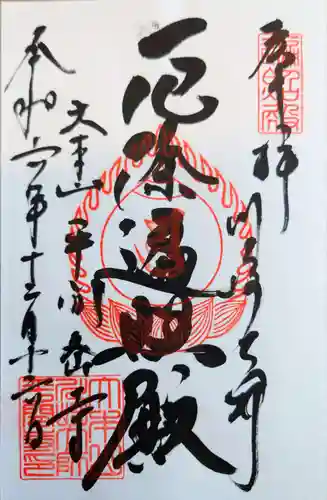 奉拝 川崎大師
厄除遍照殿
大本山 平間寺
令和六年十二月十六日